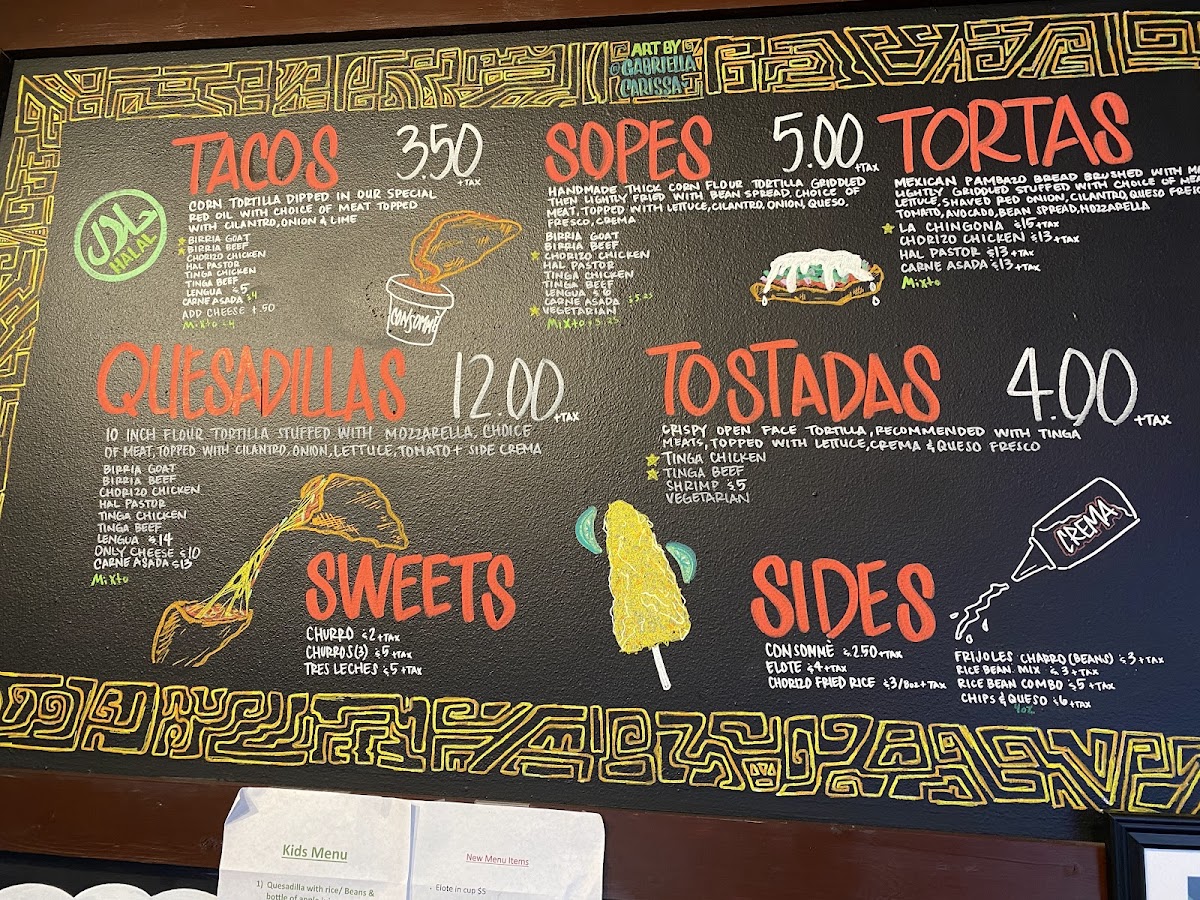 ART BY
@GABRIELLA
CARISSA
TACOS 3.50 +TAX
CORN TORTILLA DIPPED IN OUR SPECIAL
RED OIL WITH CHOICE OF MEAT TOPPED
WITH CILANTRO, ONION & LIME
حلال
HALAL
BIRRIA GOAT
BIRRIA BEEF
CHORIZO CHICKEN
HAL PASTOR
TINGA CHICKEN
TINGA BEEF
LENGUA $5
CARNE ASADA $4
ADD CHEESE +.50
Mixto $4
CONSOMMÈ
SOPES 5.00 +TAX
HANDMADE THICK CORN FLOUR TORTILLA GRIDDLED
THEN LIGHTLY FRIED WITH BEAN SPREAD, CHOICE OF
MEAT, TOPPED WITH LETTUCE, CILANTRO, ONION, QUESO,
FRESCO, CREMA
BIRRIA GOAT
BIRRIA BEEF
CHORIZO CHICKEN
HAL PASTOR
TINGA CHICKEN
TINGA BEEF
LENGUA $6
CARNE ASADA $5.25
VEGETARIAN
Mixto $5.25
TORTAS
MEXICAN PAMBAZO BREAD BRUSHED WITH
LIGHTLY GRIDDLED STUFFED WITH CHOICE OF
LETTUCE, SHAVED RED ONION, CILANTRO, QUESO
TOMATO, AVOCADO, BEAN SPREAD, MOZZARELLA
LA CHINGONA $15+TAX
CHORIZO CHICKEN $13+TAX
HAL PASTOR $13+TAX
CARNE ASADA $13+TAX
Mixto
QUESADILLAS 12.00 +TAX
10 INCH FLOUR TORTILLA STUFFED WITH MOZZARELLA, CHOICE
OF MEAT, TOPPED WITH CILANTRO, ONION, LETTUCE, TOMATO + SIDE CREMA
BIRRIA GOAT
BIRRIA BEEF
CHORIZO CHICKEN
HAL PASTOR
TINGA CHICKEN
TINGA BEEF
LENGUA $14
ONLY CHEESE $10
CARNE ASADA $13
Mixto
TOSTADAS 4.00 +TAX
CRISPY OPEN FACE TORTILLA, RECOMMENDED WITH TINGA
MEATS, TOPPED WITH LETTUCE, CREMA & QUESO FRESCO
TINGA CHICKEN
TINGA BEEF
SHRIMP $5
VEGETARIAN
CREMA
SWEETS
CHURRO $2+TAX
CHURROS(3) $5+TAX
TRES LECHES $5+TAX
SIDES
CONSOMMÈ $2.50+TAX
ELOTE $4+TAX
CHORIZO FRIED RICE $3/8oz+TAX
FRIJOLES CHARRO (BEANS) $3+TAX
RICE BEAN MIX $3+TAX
RICE BEAN COMBO $5+TAX
CHIPS & QUESO $6+TAX
4oz
Kids Menu
1) Quesadilla with rice/ Beans &
bottle of
New Menu Items
- Elote in cup $5